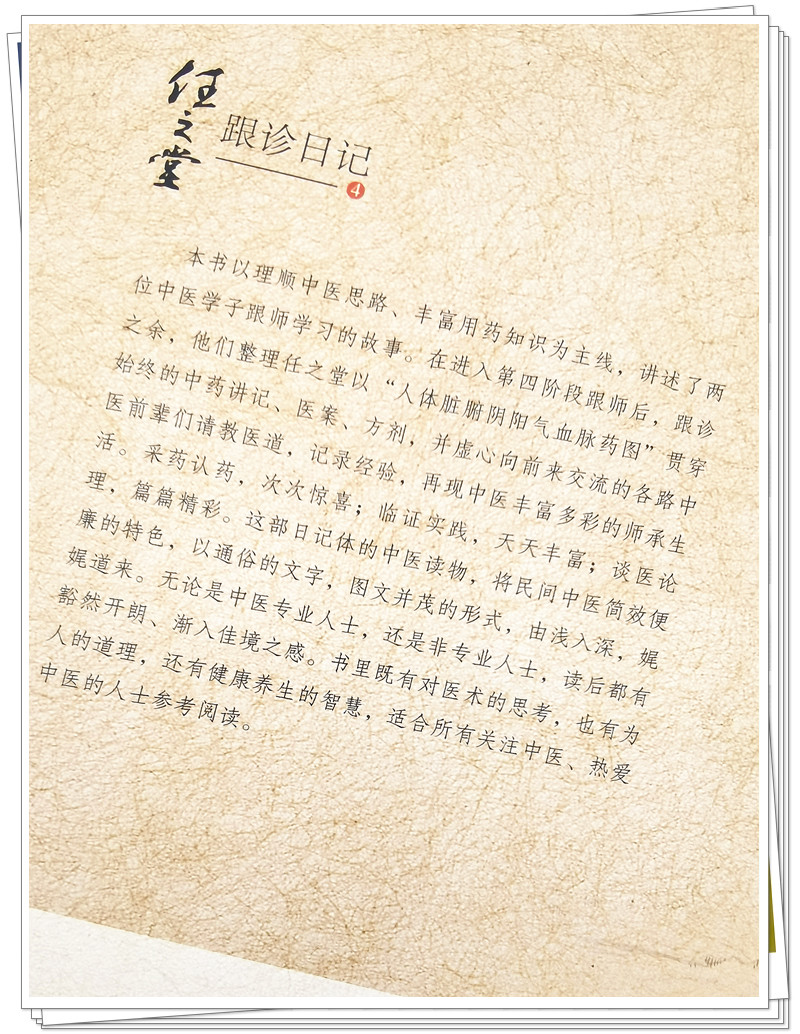 任之堂
跟诊日记
4
本书以理顺中医思路、丰富用药知识为主线，讲述了两
位中医学子跟师学习的故事。在进入第四阶段跟师后，跟诊
之余，他们整理任之堂以“人体脏腑阴阳气血脉药图”贯穿
始终的中药讲记、医案、方剂，并虚心向前来交流的各路中
医前辈们请教医道，记录经验，再现中医丰富多彩的师承生
活。采药认药，次次惊喜；临证实践，天天丰富；谈医论
理，篇篇精彩。这部日记体的中医读物，将民间中医简效便
廉的特色，以通俗的文字，图文并茂的形式，由浅入深，娓
娓道来。无论是中医专业人士，还是非专业人士，读后都有
豁然开朗、渐入佳境之感。书里既有对医术的思考，也有为
人的道理，还有健康养生的智慧，适合所有关注中医、热爱
中医的人士参考阅读。